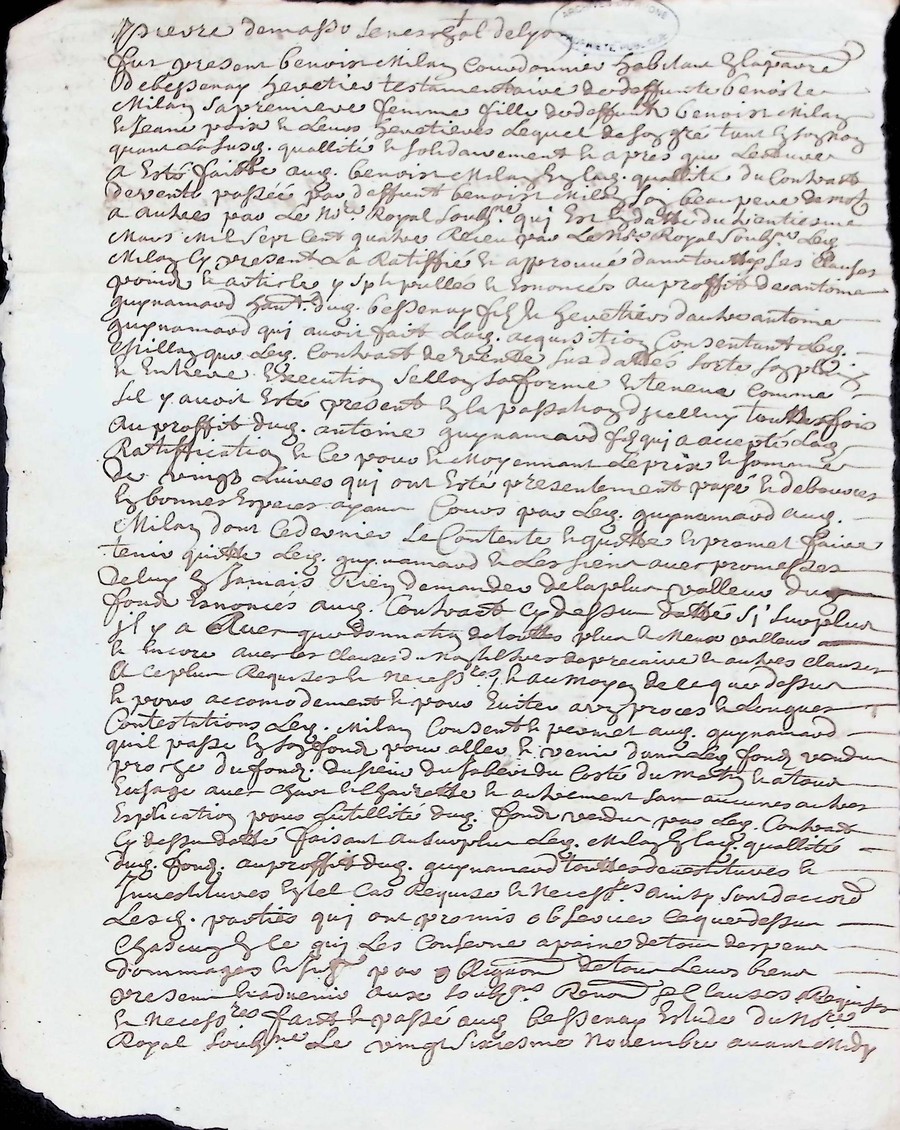 pierre demasso seneschal de lyon
ARCHIVES
PUBLIQUE
fut present benoist Milan Courdonnier habitant En la parroe
de bessenay heretier testamentaire de deffunte benoiste
Milan sa premiere femme fille de deffunt benoist Milan
et Jeane et Leurs heretieres Lequel de son gré tant En son nom
quant La susd. quallitté et solidairement et apres que Lecture
a Esté faitte aud. benoist Milan En lad. quallitté du Contract
de vente passéé par deffunt benoist Milan son beau pere
a autres par Le Nre Royal soubne qui Est En datte du
Mars Mil sept Cent quatre Receu par Le Nre Royal soubne Led.
Milan Cy present La Ratiffié et approuvé dans touttes ses Clauses
point et article y et Enoncés au proffit de antoine
guynamard hant. dud. bessenay fils et heretiers d'autre antoine
guynamard qui avoit fait Lad. acquisition Consentant Led.
Millan que Led. Contract de vente sus datté sorte son plein
et Entiere Execution sellon sa forme et teneur comme
sil y avoit Esté present En la passation d'icelluy touttesfois
au proffit dud. antoine guynamard fils qui a accepté Lad.
Ratiffication et Ce pour et Moyennant Le prix et somme
de vingt Livres qui ont Esté presentement payé et debources
En bonnes Especes ayant Cours par Led. guynamard aud.
Milan dont Ce dernier se Contente et quitte et promet faire
tenir quitte Led. guynamard et Les siens avec promesses
de luy En Jamais Rien demander de la plus valleur dud.
fond Enoncés aud. Contract Cy dessus datté si surplus
Il y a avec que donnation de touttes plus et Meux valleur
et Encore avec les Clauses de precaire et autres clauses
a Ce plus Requises et Necessres, et au Moyen de ce que dessus
et pour accomodement et pour Eviter a un proces et Longues
Contestations Led. Milan Consent et permet aud. guynamard
quil passe En son fond pour aller et venir dans Led. fond vendu
proche du fond. du sieur du Costé du Matin et a tour
Et usage avec Chart et Charrette et autrement sans aucunes autres
Explication pour Lutillité dud. fond vendu par Led. Contract
Cy dessus datté faisant au surplus Led. Milan En lad. quallité
dud. fond. au proffit dud. guynamard touttes devestitures et
Investitures En tel Cas Requise et Necessres ainsy sont d'accord
Lesd. parties qui ont promis observer Ce que dessus
Chascun En Ce qui Les Conserne a paine de tous despens
dommages et par obligaon de tous Leurs biens
present et advenir aux soubnons Renon et Clauses Requises
et Necessres fait et passé aud. bessenay Estude du Nre
Royal soubne Le vingt sixiesme Novembre avant Midy